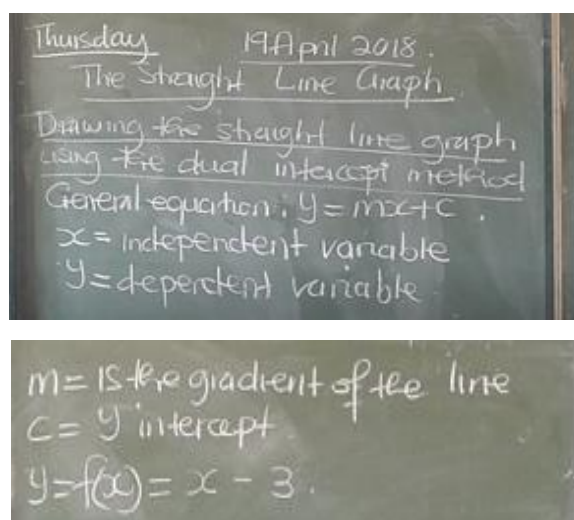 Thursday 19 April 2018.
The Straight Line Graph
Drawing the straight line graph
using the dual intercept method
General equation: y = mx + c.
x = independent variable
y = dependent variable
m = is the gradient of the line
c = y intercept
y = f(x) = x - 3.